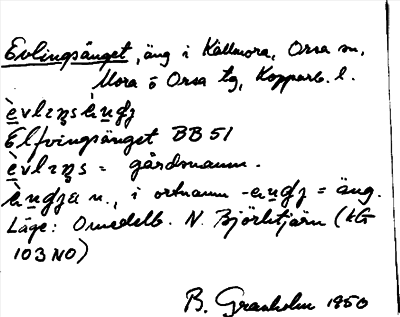 Evlingsänget, äng i Kallmora, Orsa sn,
Mora ö Orsa tg, Kopparb. l.
èvlıŋsèŋdʒ
Elfvingsänget BB 51
èvlıŋs = gårdsnamn.
èŋdʒa n., i ortnamn -eŋdʒ = äng.
Läge: Omedelb. N. Björktjärn (kG
103 NO)
B. Granholm 1950